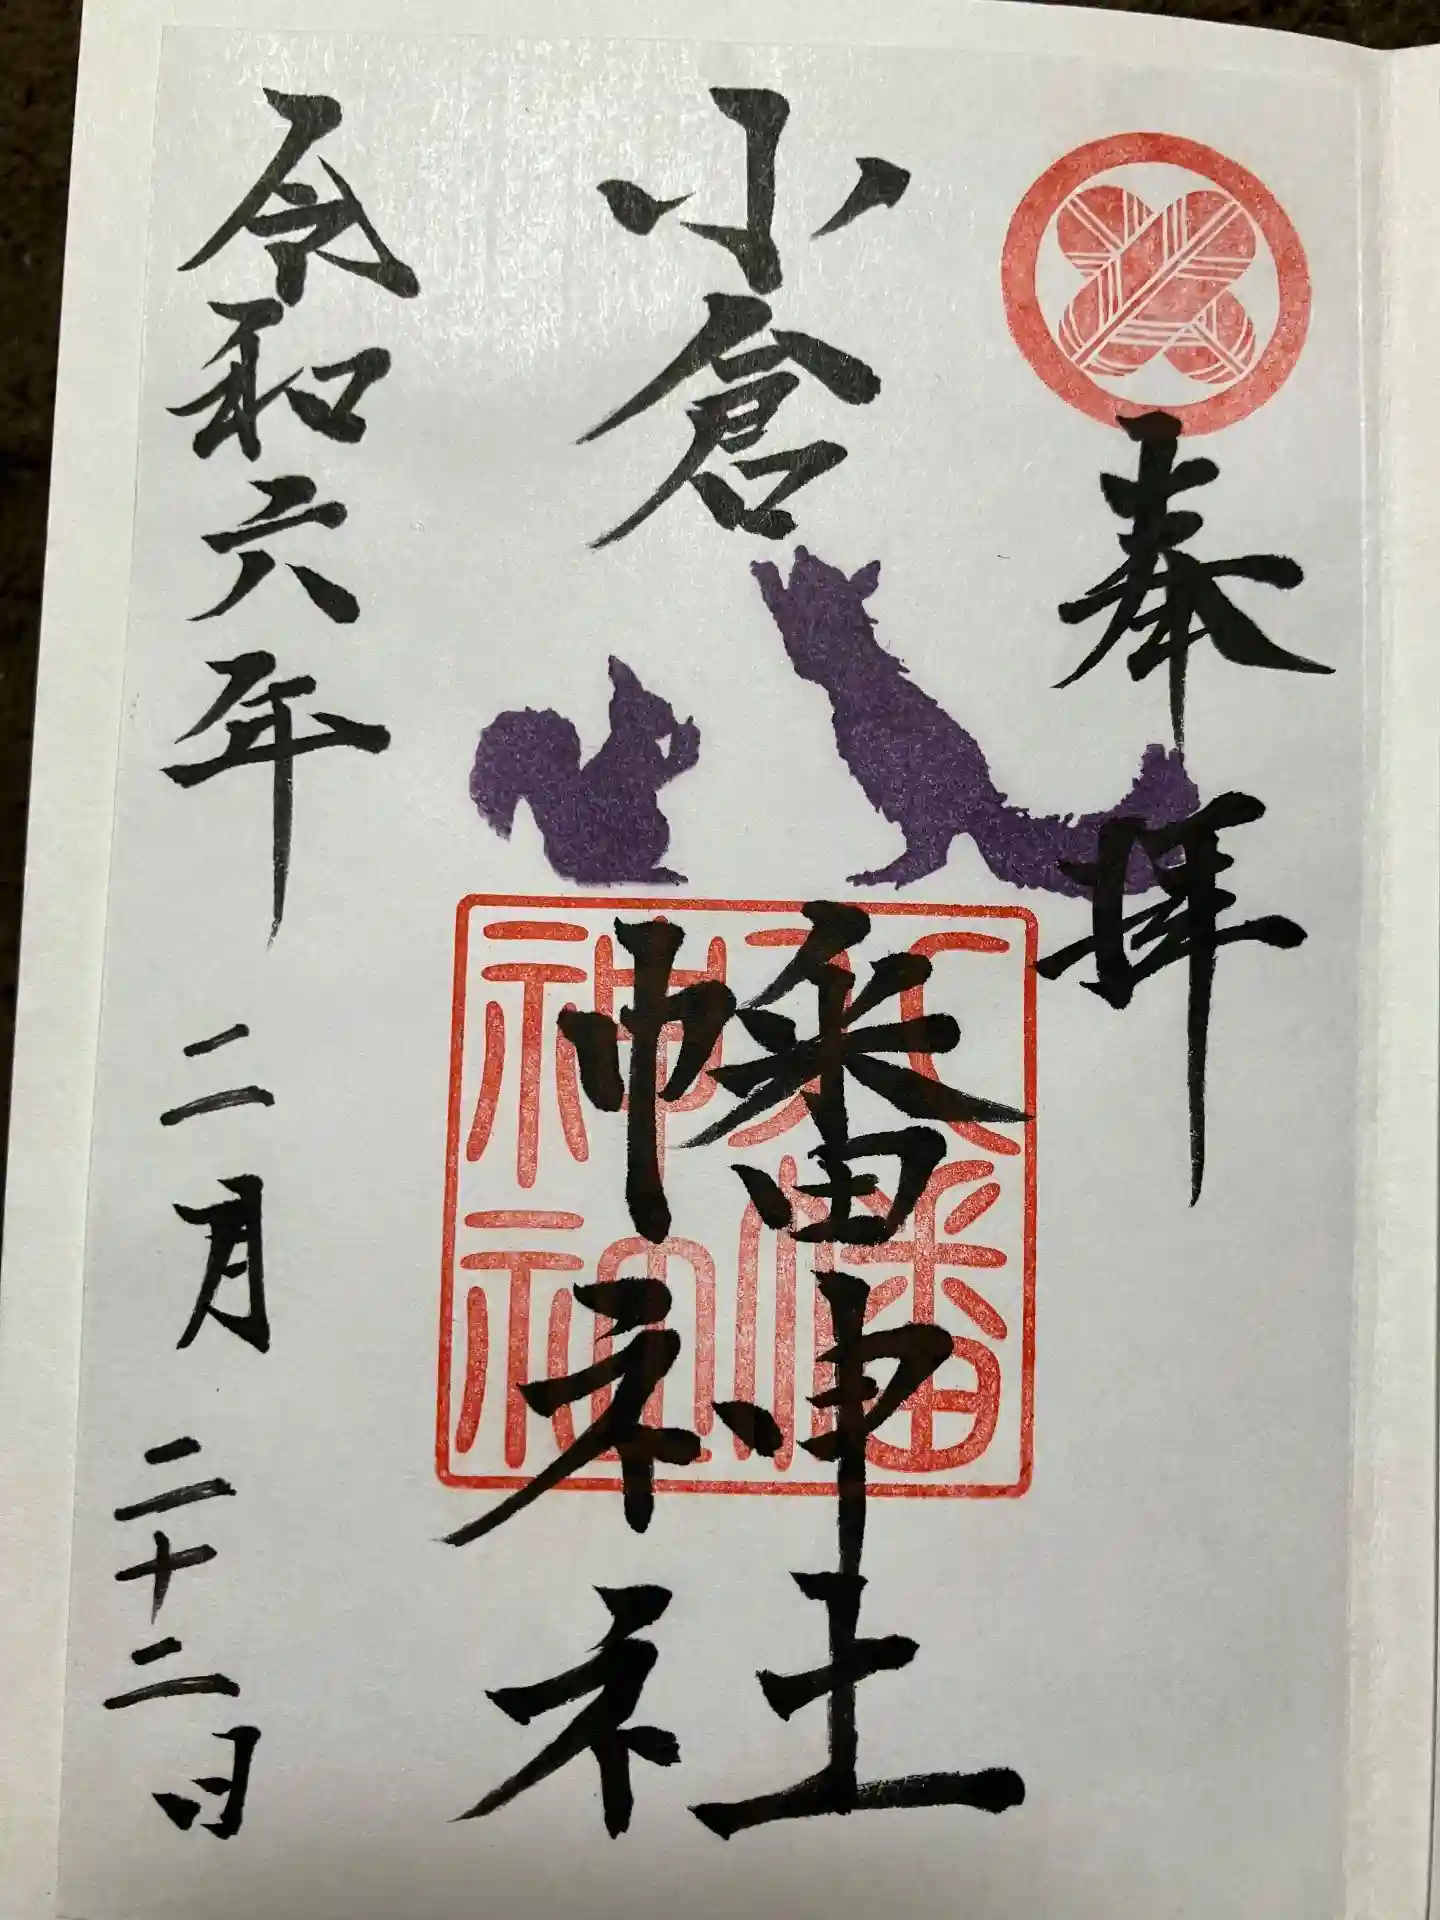 奉拝
小倉八幡神社
八幡
神社
令和六年二月二十二日